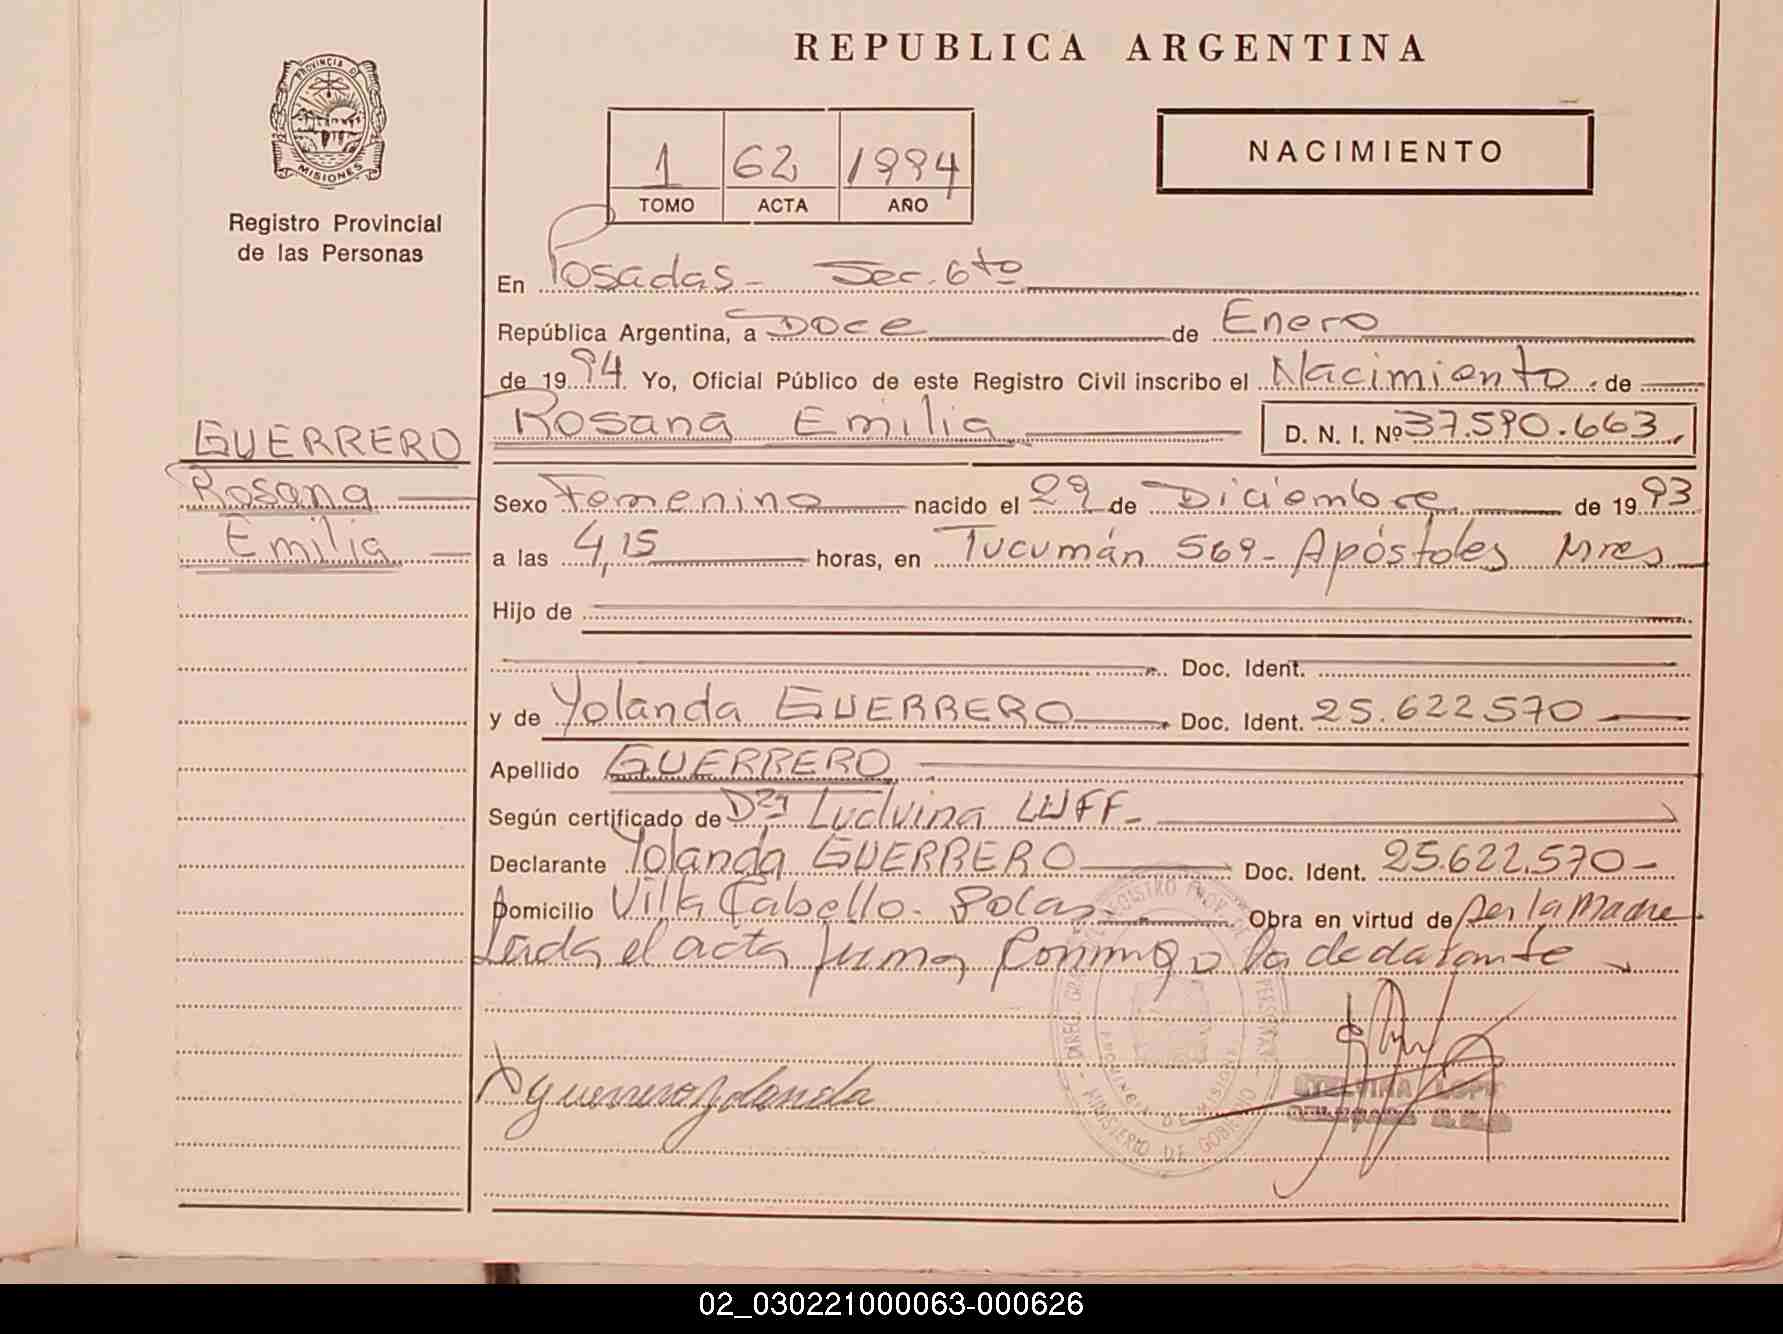 REPUBLICA ARGENTINA
PROVINCIA DE
MISIONES
Registro Provincial
de las Personas
NACIMIENTO
1 62 1994
TOMO ACTA AÑO
En Posadas - Sec. 6to
República Argentina, a Doce de Enero
de 1994 Yo, Oficial Público de este Registro Civil inscribo el Nacimiento de
Rosana Emilia D. N. I. Nº 37.590.663
GUERRERO
Rosana
Emilia
Sexo Femenino nacido el 29 de Diciembre de 1993
a las 4,15 horas, en Tucumán 569 - Apóstoles Mnes
Hijo de
Doc. Ident.
y de Yolanda GUERRERO Doc. Ident. 25.622570
Apellido GUERRERO
Según certificado de Dra Ludvina LUFF -
Declarante Yolanda GUERRERO Doc. Ident. 25.622.570 -
Domicilio Villa Cabello - Posdas - Obra en virtud de ser la Madre
Leida el acta firma conmigo la declarante
Guerrero Yolanda
DIREC. GRAL. REGISTRO PROV. DE PERSONAS
PROVINCIA DE MISIONES
MINISTERIO DE GOBIERNO
02_030221000063-000626